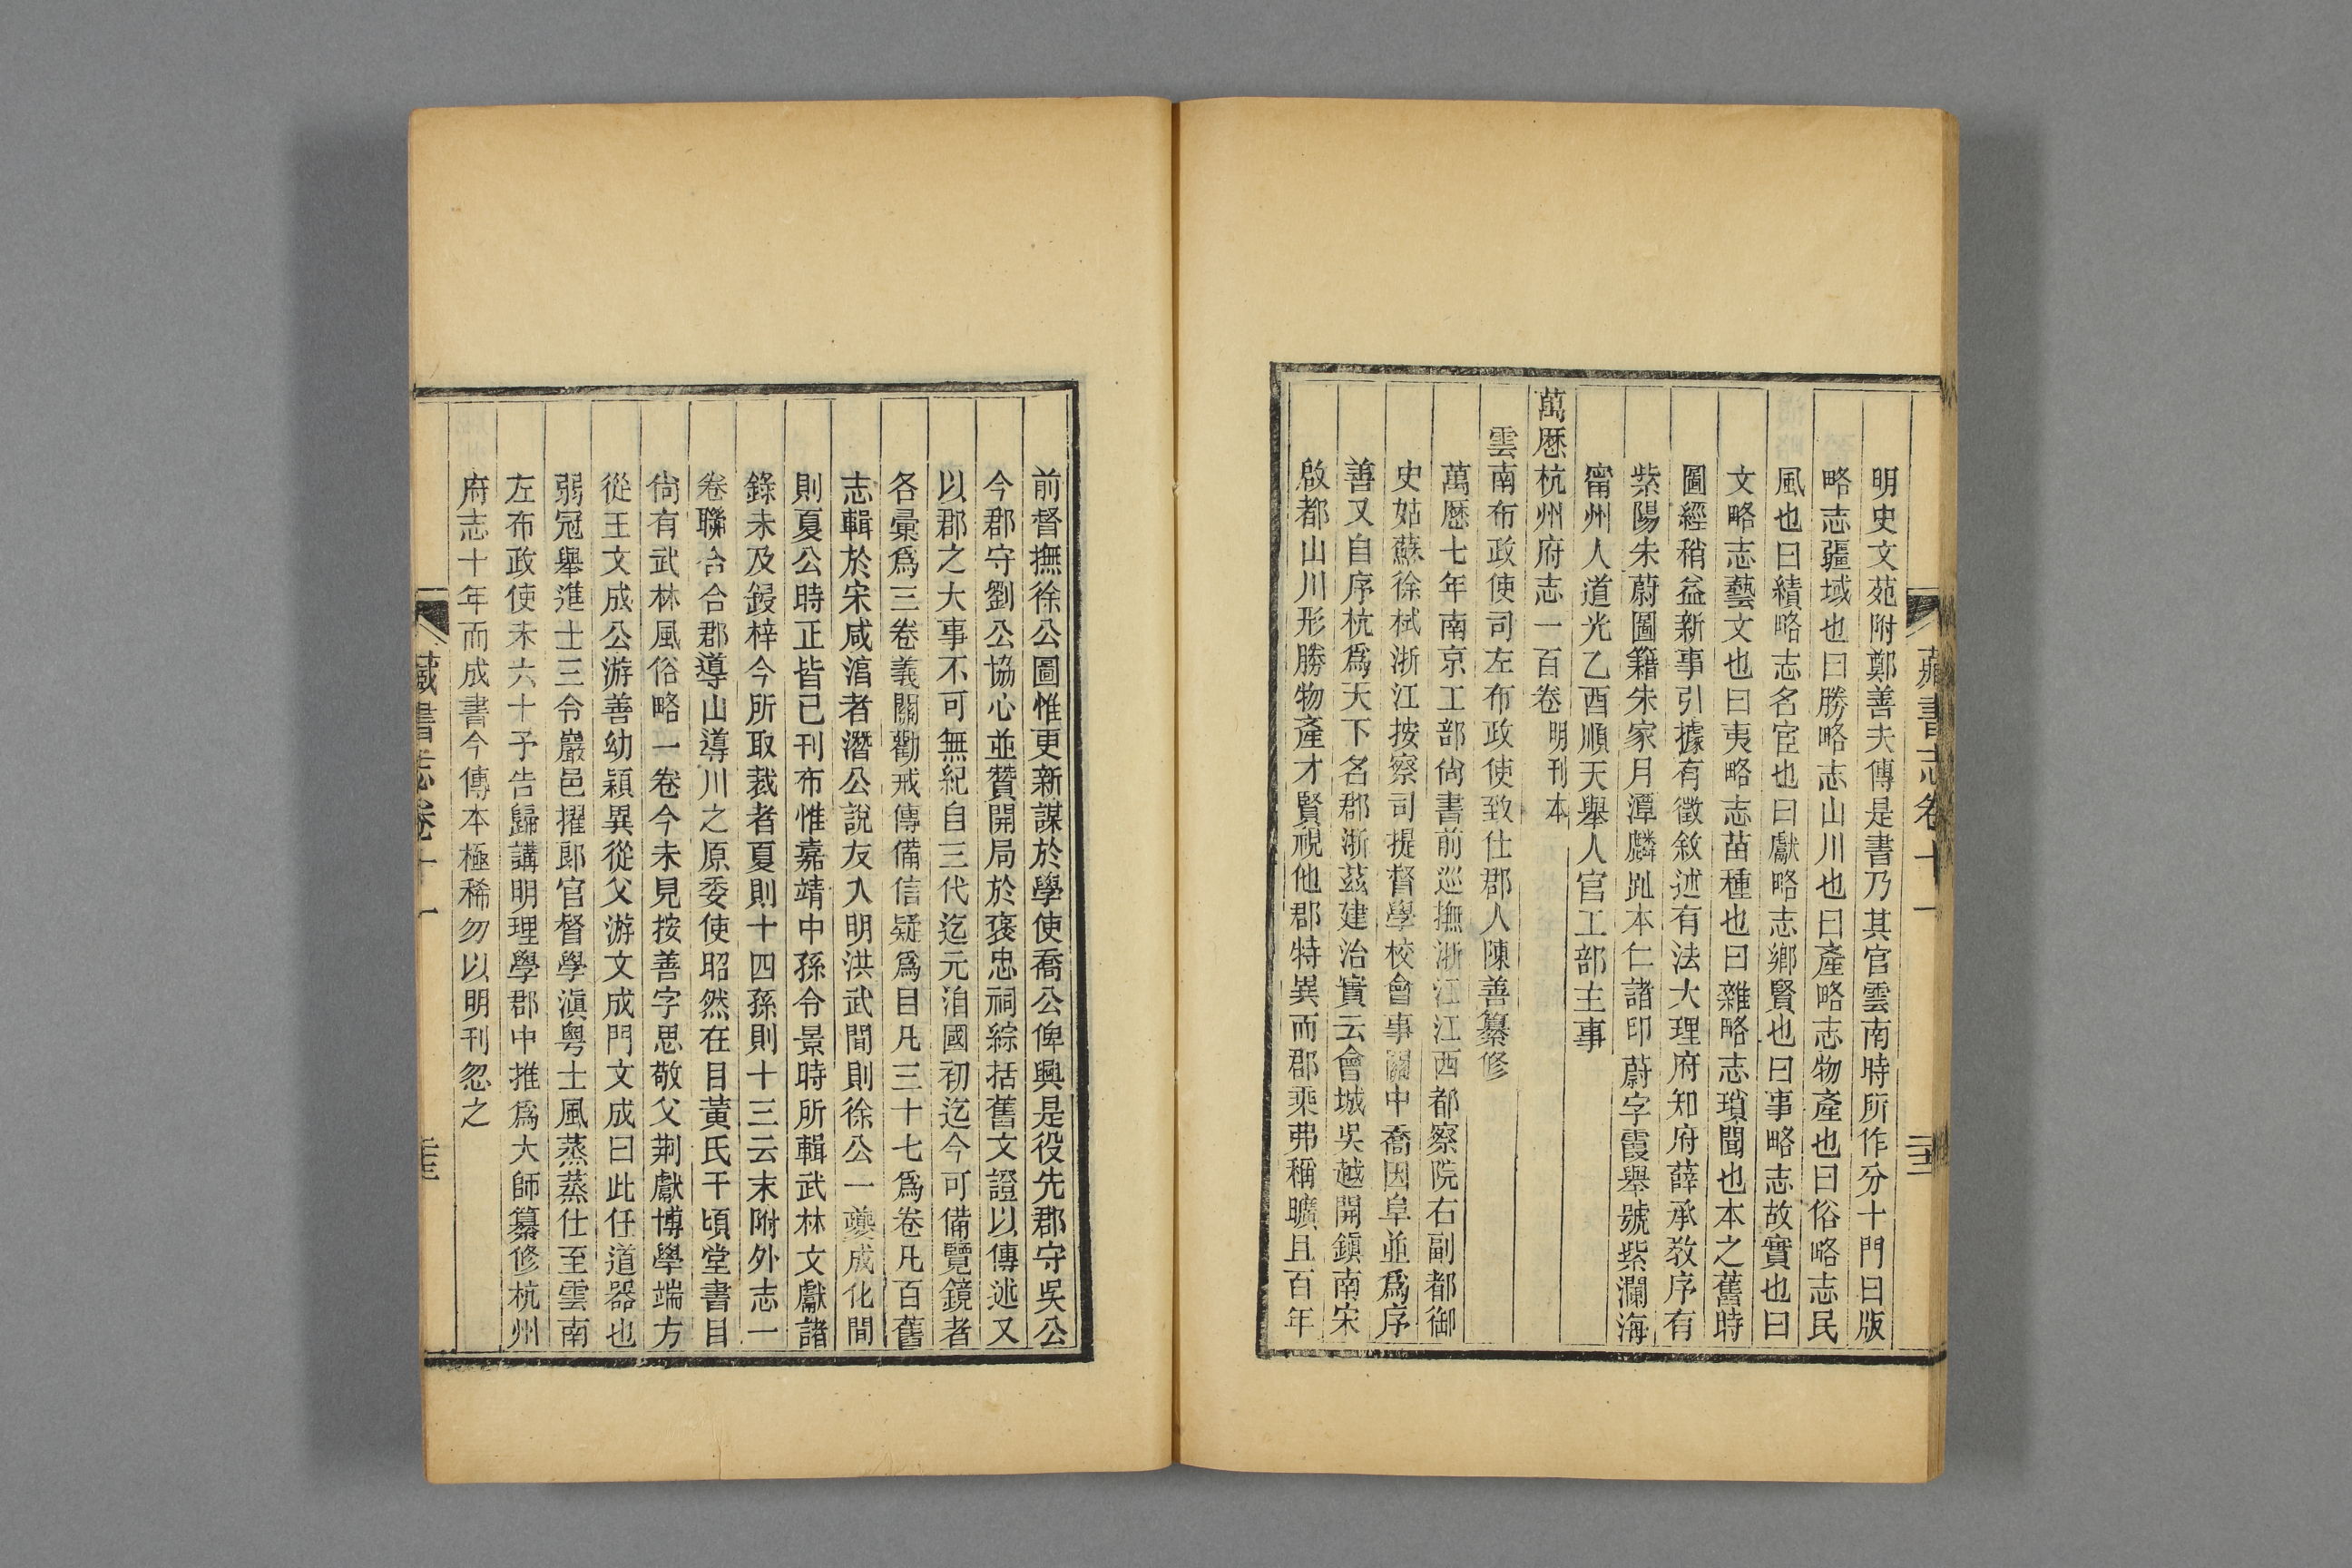 藏書志卷十一
明史文苑附鄭善夫傳是書乃其官雲南時所作分十門曰版
略志疆域也曰勝略志山川也曰產略志物產也曰俗略志民
風也曰績略志名宦也曰獻略志鄉賢也曰事略志故實也曰
文略志藝文也曰夷略志苗種也曰雜略志瑣聞也本之舊時
圖經稍益新事引據有徵敘述有法大理府知府薛承教序有
紫陽朱蔚圖籍朱家月潭麟趾本仁諸印蔚字霞舉號紫瀾海
甯州人道光乙酉順天舉人官工部主事
萬厯杭州府志一百卷 明刊本
雲南布政使司左布政使致仕郡人陳善纂修
萬厯七年南京工部尙書前巡撫浙江江西都察院右副都御
史姑蘇徐栻浙江按察司提督學校僉事關中喬因阜並爲序
善又自序杭爲天下名郡浙茲建治實云會城吳越開鎮南宋
啟都山川形勝物產才賢視他郡特異而郡乘弗稱曠且百年
前督撫徐公圖惟更新謀於學使喬公俾興是役先郡守吳公
今郡守劉公協心並贊開局於褒忠祠綜括舊文證以傳述又
以郡之大事不可無紀自三代迄元洎國初迄今可備覽鏡者
各彙爲三卷義關勸戒傳備信疑爲目凡三十七爲卷凡百舊
志輯於宋咸淳者潛公說友入明洪武間則徐公一夔成化間
則夏公時正皆已刊布惟嘉靖中孫令景時所輯武林文獻諸
錄未及鋟梓今所取裁者夏則十四孫則十三云末附外志一
卷聯合合郡導山導川之原委使昭然在目黃氏千頃堂書目
尙有武林風俗略一卷今未見按善字思敬父荆獻博學端方
從王文成公游善幼穎異從父游文成門文成曰此任道器也
弱冠舉進士三令巖邑擢郎官督學滇粤士風蒸蒸仕至雲南
左布政使未六十予告歸講明理學郡中推爲大師纂修杭州
府志十年而成書今傳本極稀勿以明刊忽之
藏書志卷十一